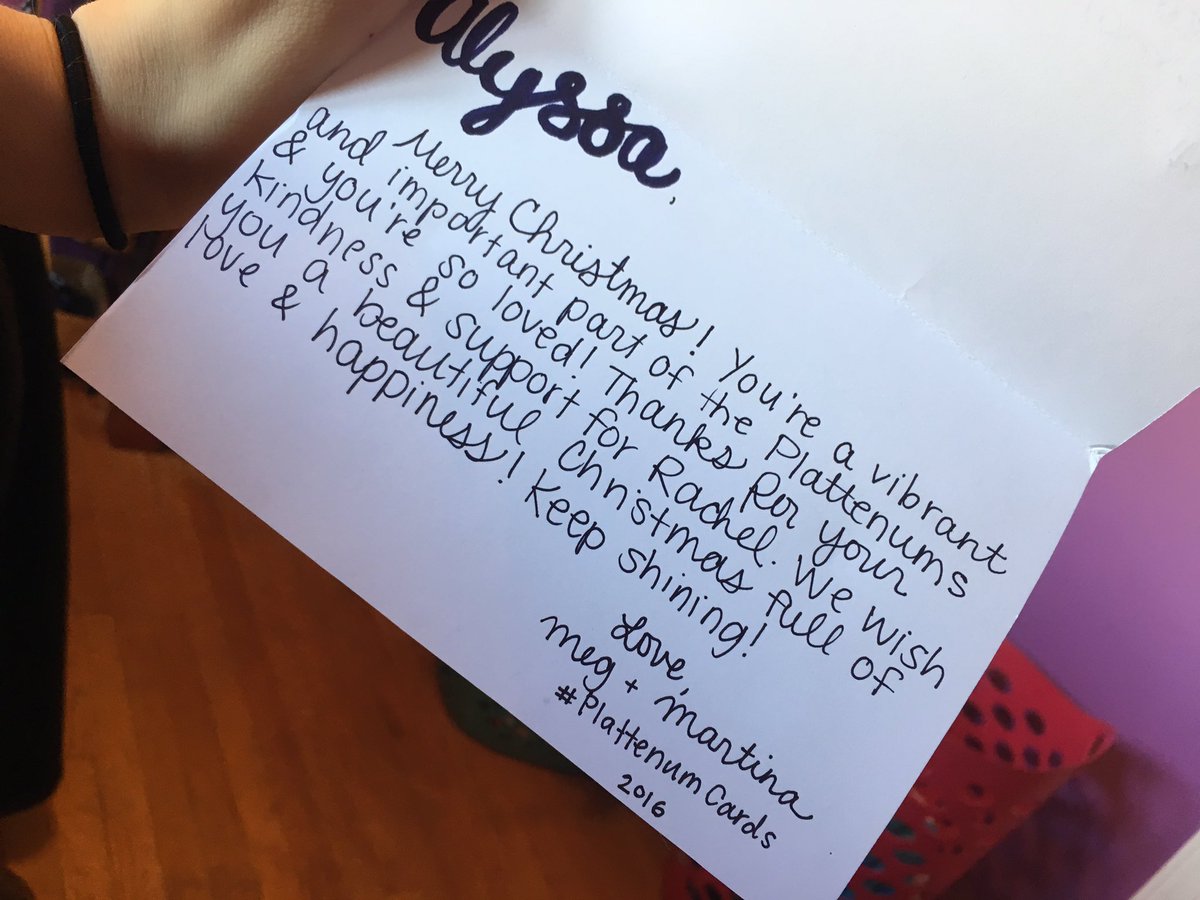 Alyssa,
Merry Christmas! You're a vibrant
and important part of the Plattenums
& you're so loved! Thanks for your
kindness & support for Rachel. We wish
you a beautiful Christmas full of
love & happiness! Keep shining!
Love,
meg + martina
#PlattenumCards
2016